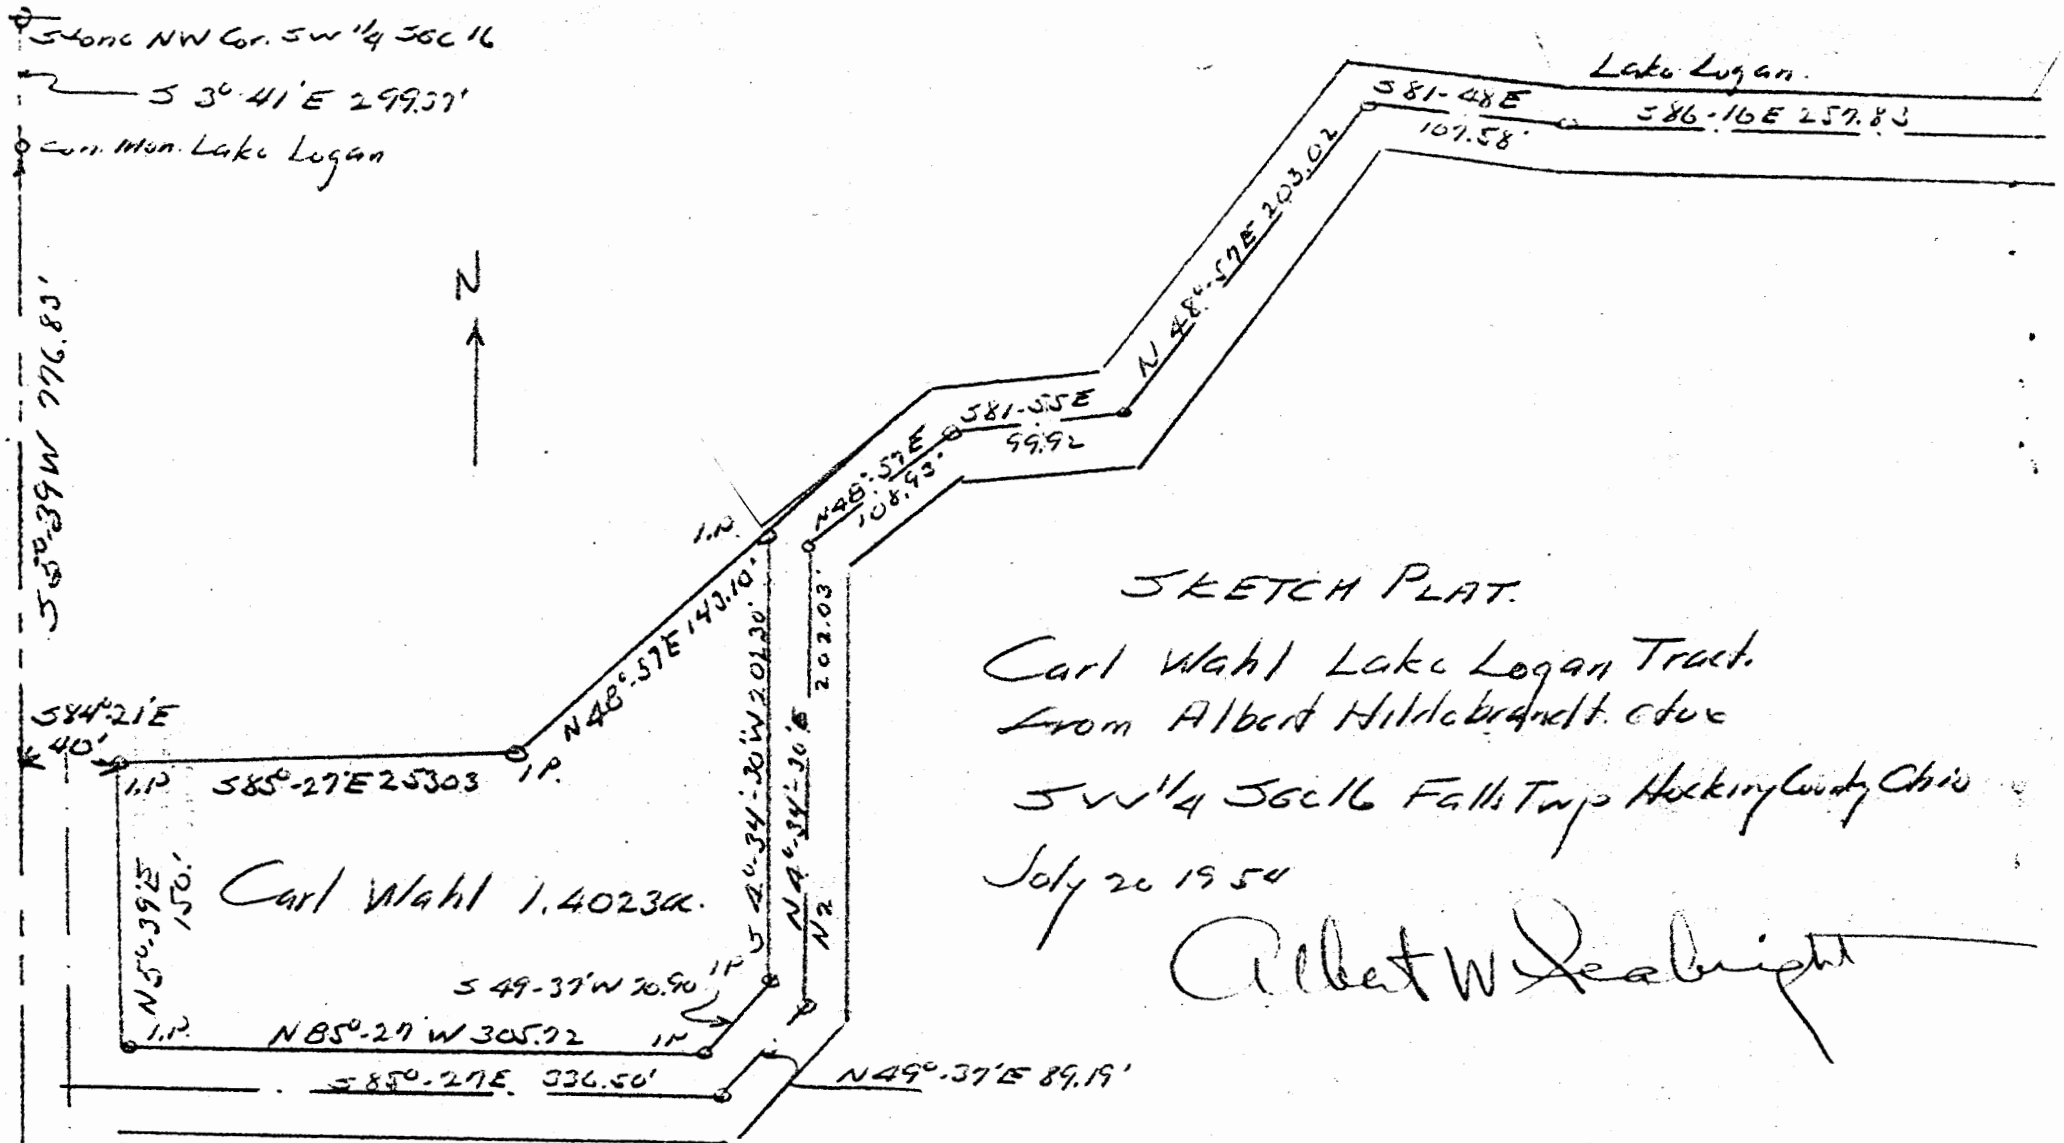 Stone NW Cor. SW 1/4 Sec 16
S 3°-41'E 299.37'
con. Mon. Lake Logan
S5°-39W 776.83'
N
Lake Logan.
S81-48E
107.58'
S86-16E 257.83
N 48°-57E 203.02
S81-55E
99.92
N48°-57E
108.93'
I.P.
N48°-57E 143.10'
S 4°-34'-30"W 201.30'
202.03'
N4°-34'-30"E
N2
S84°-21'E
40'
I.P.
S85°-27'E 253.03
I.P.
N5°-39'E
150.'
Carl Wahl 1.4023a.
S 49-37'W 70.90
I.P.
I.P.
N 85°-27' W 305.72
I.P.
S 85°-27E. 336.50'
N49°-37'E 89.19'
SKETCH PLAT.
Carl Wahl Lake Logan Tract.
From Albert Hildebrandt. etux
SW 1/4 Sec 16 Falls Twp Hocking County Ohio
July 20 1954
Albert W Seabright